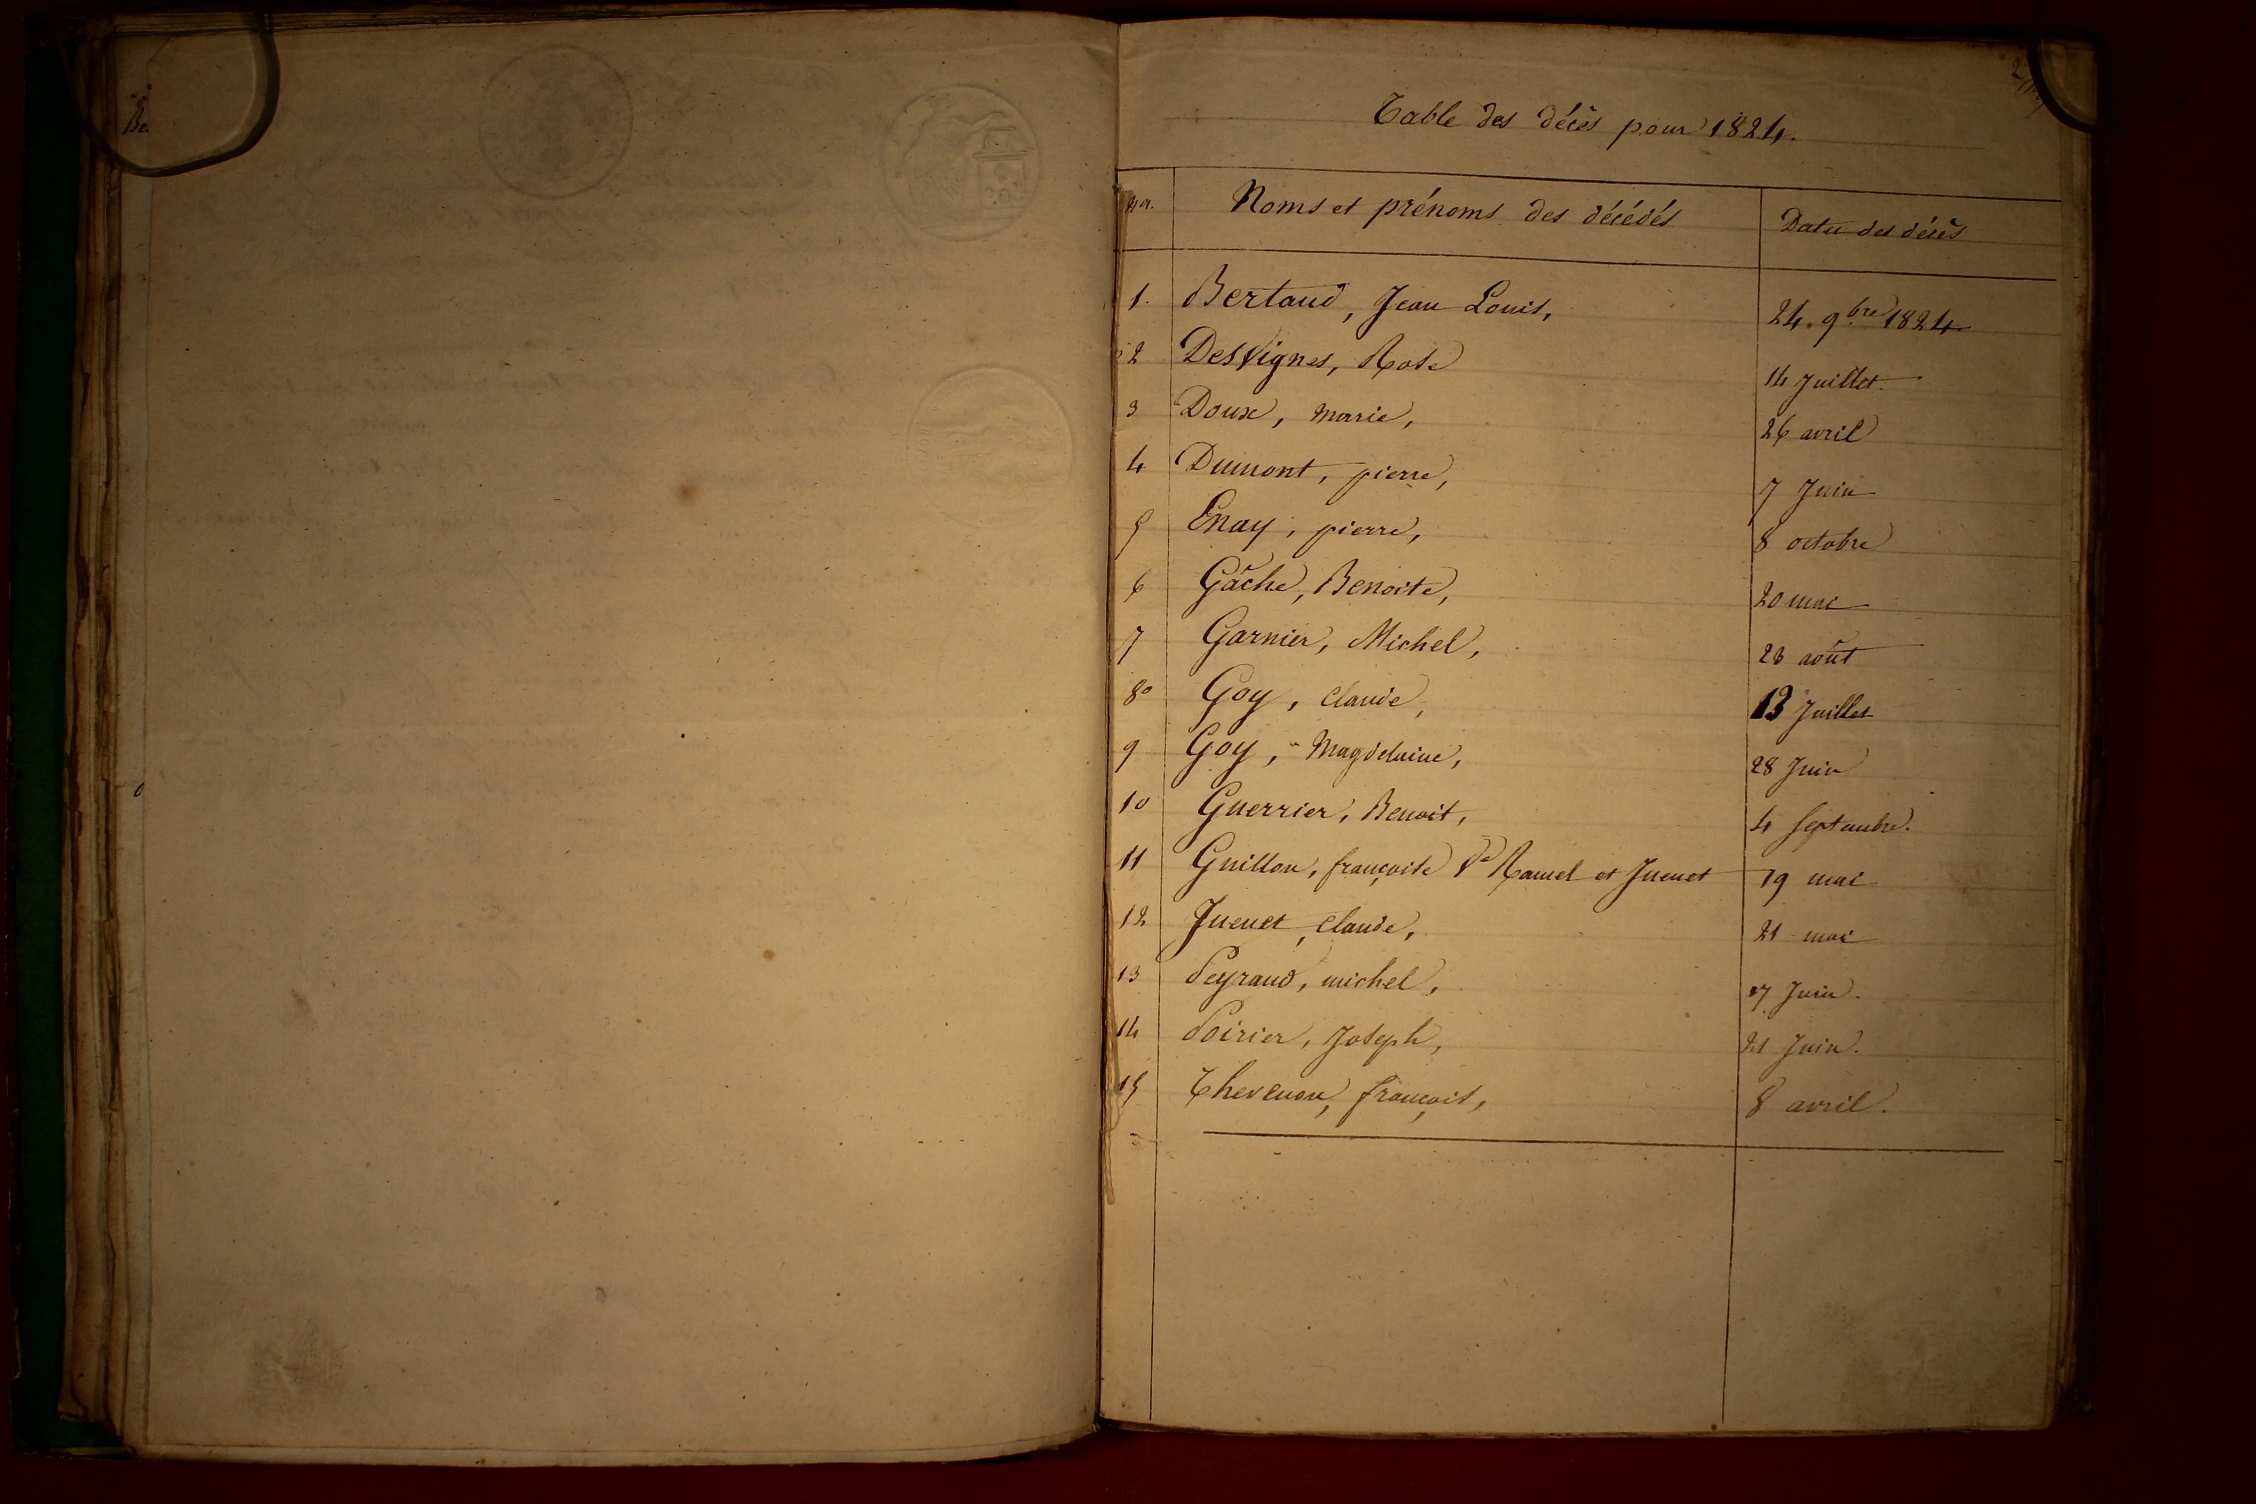 Table des décès pour 1824.
Noms et prénoms des décédés Dates des décès
1. Bertaud, Jean Louis, 24. 9bre 1824
2 Desvignes, Rose 14 Juillet.
3 Doux, marie, 26 avril
4 Dumont, pierre, 7 Juin
5 Enay, pierre, 8 octobre
6 Gâche, Benoite, 20 mai
7 Garnier, Michel, 23 août
8° Goy, Claude, 13 Juillet
9 Goy, Magdelaine, 28 Juin
10 Guerrier, Benoit, 4 Septembre.
11 Guillon, françoise Ve Ramel et Juenet 19 mai
12 Juenet, Claude, 21 mai
13 Peyraud, michel, 7 Juin.
14 Poirier, Joseph, 21 Juin.
15 Thevenon, françois, 8 avril.